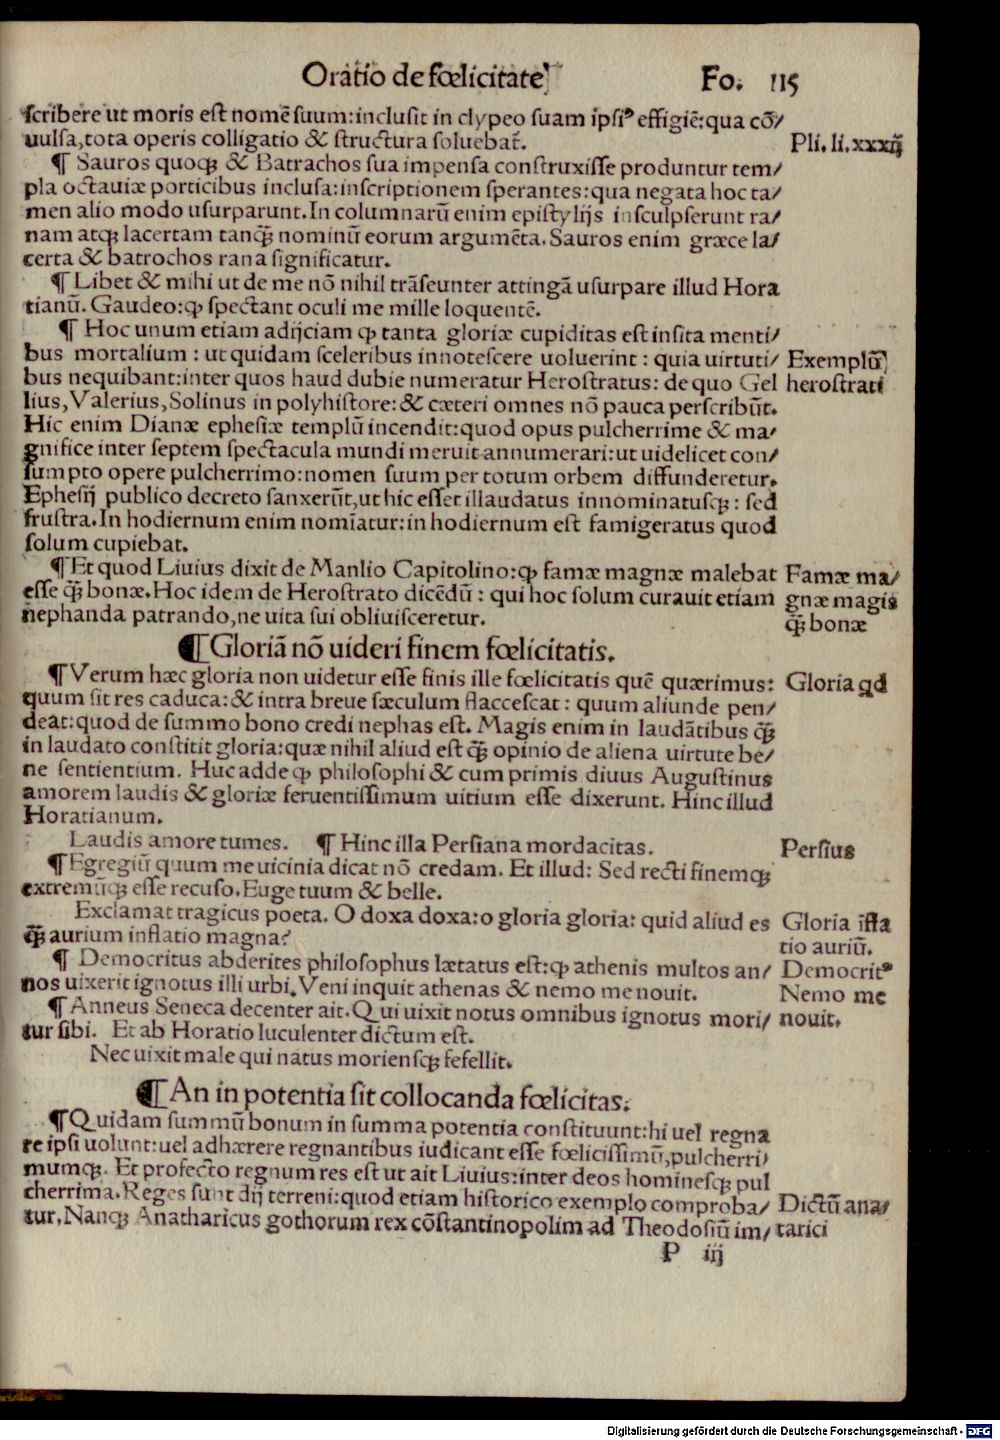 Oratio de fœlicitate Fo. 115
scribere ut moris est nomē suum:inclusit in clypeo suam ipsiꝰ effigiē:qua cō/
uulsa,tota operis colligatio & structura soluebat̃. Pli. li.xxxiĵ
¶ Sauros quoqꝫ & Batrachos sua impensa construxisse produntur tem/
pla octauiæ porticibus inclusa:inscriptionem sperantes:qua negata hoc ta/
men alio modo usurparunt.In columnarū enim epistylijs insculpserunt ra/
nam atqꝫ lacertam tanqꝫ̃ nominū eorum argumēta.Sauros enim græce la/
certa & batrochos rana significatur.
¶ Libet & mihi ut de me nō nihil trāseunter attingā usurpare illud Hora
tianū. Gaudeo:ꝙ spectant oculi me mille loquentē.
¶ Hoc unum etiam adijciam ꝙ tanta gloriæ cupiditas est insita menti/
bus mortalium : ut quidam sceleribus innotescere uoluerint : quia uirtuti/ Exemplū
bus nequibant:inter quos haud dubie numeratur Herostratus: de quo Gel herostrati
lius,Valerius,Solinus in polyhistore:& cæteri omnes nō pauca perscribūt.
Hic enim Dianæ ephesiæ templū incendit:quod opus pulcherrime & ma/
gnifice inter septem spectacula mundi meruit annumerari:ut uidelicet con/
sumpto opere pulcherrimo:nomen suum per totum orbem diffunderetur.
Ephesij publico decreto sanxerūt,ut hic esset illaudatus innominatusqꝫ : sed
frustra.In hodiernum enim nomīatur:in hodiernum est famigeratus quod
solum cupiebat.
¶ Et quod Liuius dixit de Manlio Capitolino:ꝙ famæ magnæ malebat Famæ ma/
esse qꝫ̃ bonæ.Hoc idem de Herostrato dicēdū : qui hoc solum curauit etiam gnæ magis
nephanda patrando,ne uita sui obliuisceretur. qꝫ̃ bonæ
¶ Gloriā nō uideri finem fœlicitatis.
¶ Verum hæc gloria non uidetur esse finis ille fœlicitatis quē quærimus: Gloria qd
quum sit res caduca:& intra breue sæculum flaccescat : quum aliunde pen/
deat:quod de summo bono credi nephas est. Magis enim in laudātibus qꝫ̃
in laudato constitit gloria:quæ nihil aliud est qꝫ̃ opinio de aliena uirtute be/
ne sentientium. Huc adde ꝙ philosophi & cum primis diuus Augustinus
amorem laudis & gloriæ feruentissimum uitium esse dixerunt. Hinc illud
Horatianum.
Laudis amore tumes. ¶ Hinc illa Persiana mordacitas. Persius
¶ Egregiū quum me uicinia dicat nō credam. Et illud: Sed recti finemqꝫ
extremūqꝫ esse recuso.Euge tuum & belle.
Exclamat tragicus poeta. O doxa doxa:o gloria gloria: quid aliud es Gloria īfla
qꝫ̃ aurium inflatio magna? tio auriū.
¶ Democritus abderites philosophus lætatus est:ꝙ athenis multos an/ Democritꝰ
nos uixerit ignotus illi urbi.Veni inquit athenas & nemo me nouit. Nemo me
¶ Anneus Seneca decenter ait.Qui uixit notus omnibus ignotus mori/ nouit.
tur sibi. Et ab Horatio luculenter dictum est.
Nec uixit male qui natus moriensqꝫ fefellit.
¶ An in potentia sit collocanda fœlicitas.
¶ Quidam summū bonum in summa potentia constituunt:hi uel regna
re ipsi uolunt:uel adhærere regnantibus iudicant esse fœlicissimū,pulcherri/
mumqꝫ. Et profecto regnum res est ut ait Liuius:inter deos hominesqꝫ pul
cherrima.Reges sunt dij terreni:quod etiam historico exemplo comproba/ Dictū ana/
tur.Nanqꝫ Anatharicus gothorum rex cōstantinopolim ad Theodosiū im/ tarici
P iij
Digitalisierung gefördert durch die Deutsche Forschungsgemeinschaft - DFG